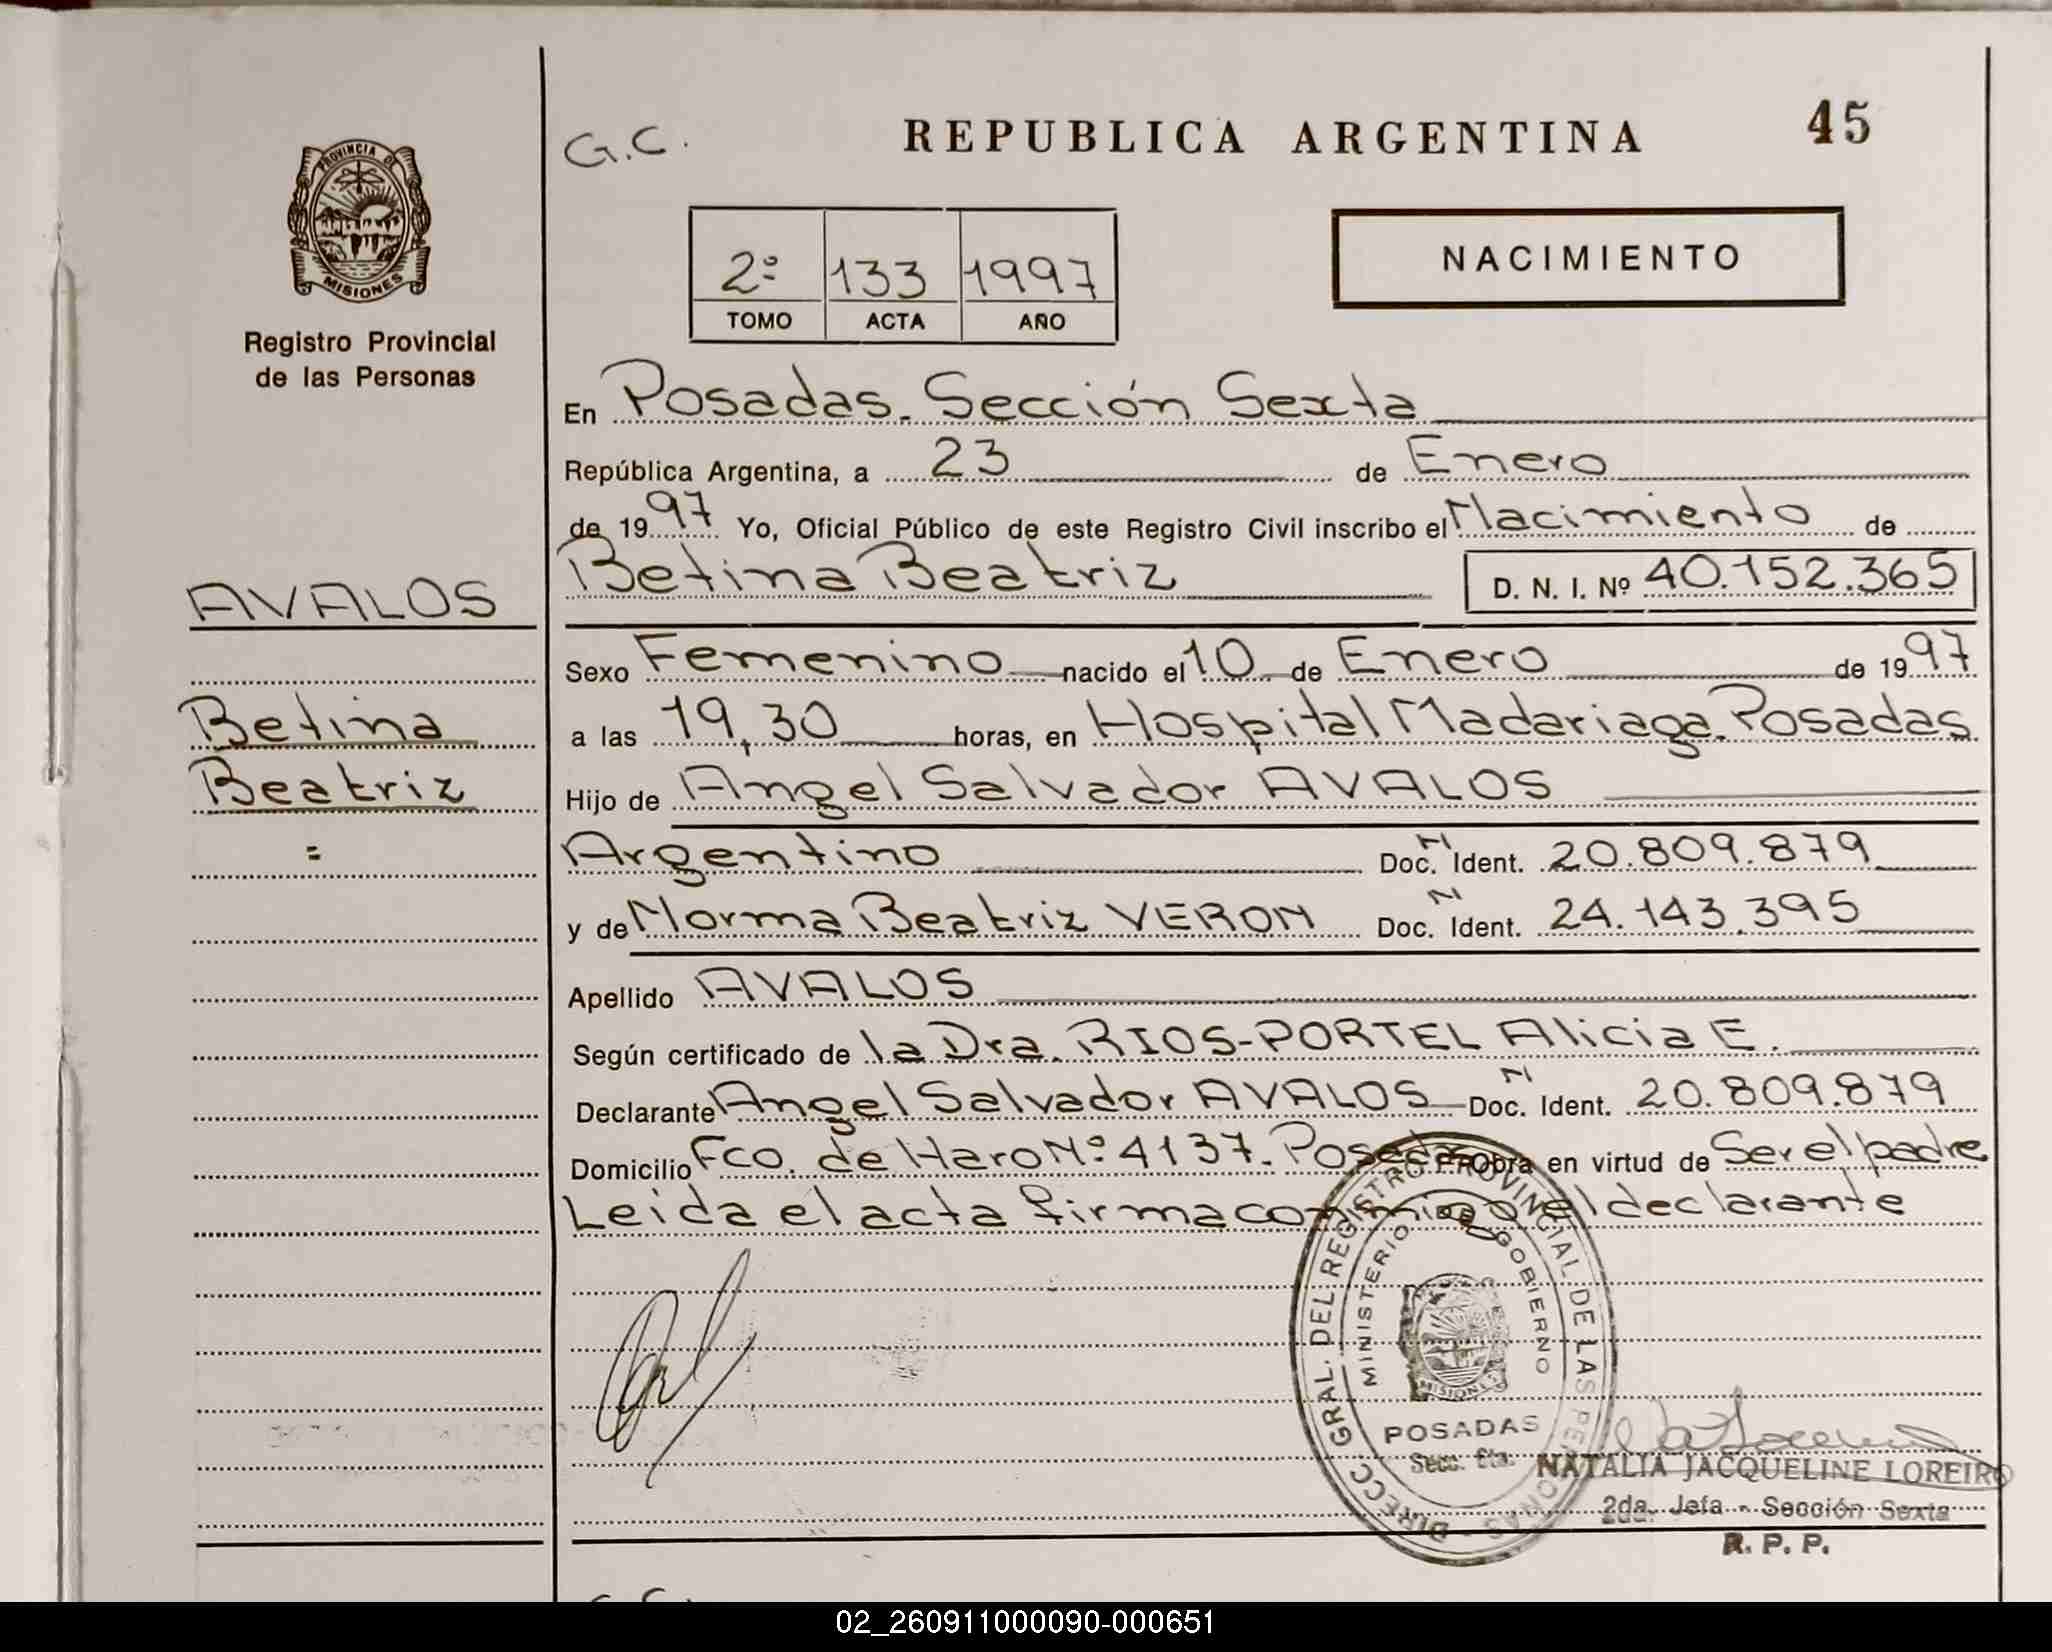 G.C.
REPUBLICA ARGENTINA
45
PROVINCIA DE
MISIONES
Registro Provincial
de las Personas
2º 133 1997
TOMO ACTA AÑO
NACIMIENTO
En Posadas. Sección Sexta
República Argentina, a 23 de Enero
de 1997 Yo, Oficial Público de este Registro Civil inscribo el Nacimiento de
Betina Beatriz D. N. I. Nº 40.152.365
AVALOS
Sexo Femenino nacido el 10 de Enero de 1997
Betina
a las 19,30 horas, en Hospital Madariaga. Posadas.
Beatriz
Hijo de Angel Salvador AVALOS
=
Argentino Doc. N Ident. 20.809.879
y de Norma Beatriz VERON Doc. N Ident. 24.143.395
Apellido AVALOS
Según certificado de la Dra. RIOS-PORTEL Alicia E.
Declarante Angel Salvador AVALOS Doc. N Ident. 20.809.879
Domicilio Fco. de Haro Nº 4137. Posadas Obra en virtud de Ser el padre
Leida el acta firma conmigo el declarante
DIRECC. GRAL. DEL REGISTRO PROVINCIAL DE LAS PERSONAS
MINISTERIO GOBIERNO
MISIONES
POSADAS
Secc. 6ta.
NATALIA JACQUELINE LOREIRO
2da. Jefa - Sección Sexta
R. P. P.
02_260911000090-000651